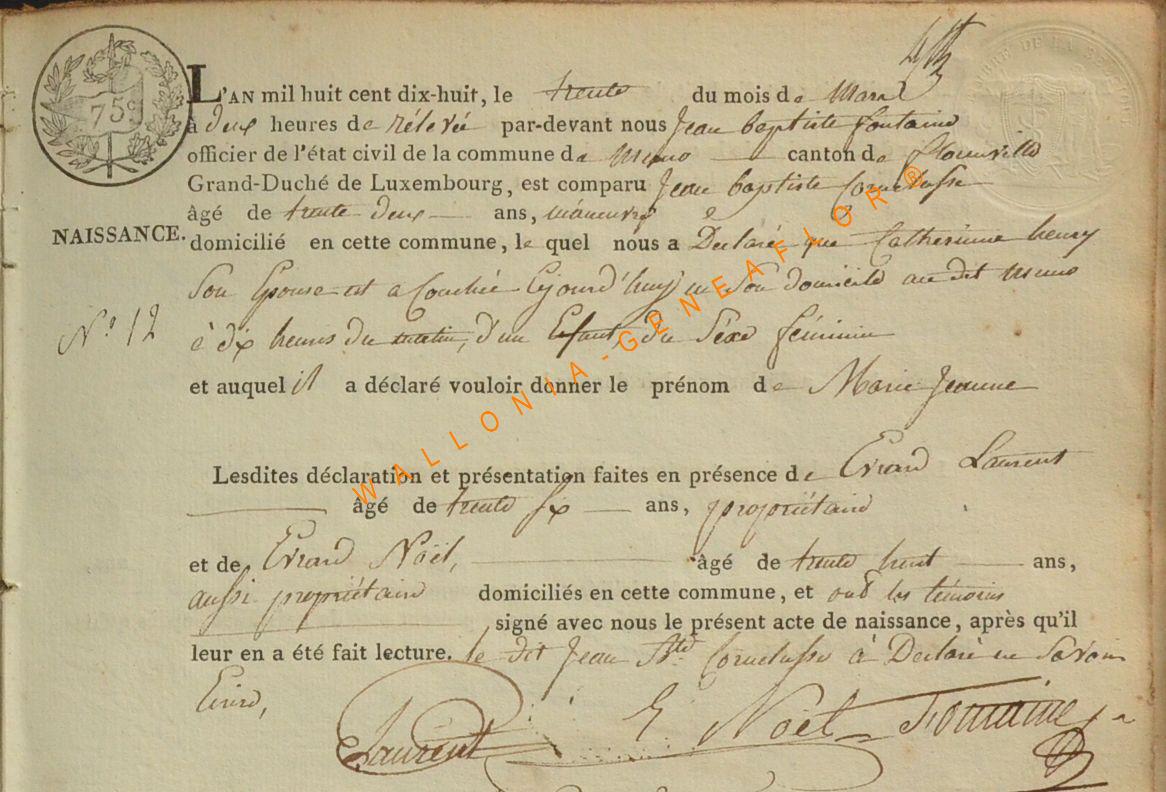 L'AN mil huit cent dix-huit, le trente du mois de Mars
à deux heures de rélevée par-devant nous Jean baptiste fontaine
officier de l'état civil de la commune de Muno canton de florenville
Grand-Duché de Luxembourg, est comparu Jean baptiste Cornelusse
âgé de trente deux ans, manœuvre
NAISSANCE.
domicilié en cette commune, le quel nous a Déclaré que Catherinne henry
Son Epouse est accouchée cejourd'huy en Son domicile au dit Muno
N.° 12
à dix heures du matin, d'un Enfant, du Séxe féminin
et auquel il a déclaré vouloir donner le prénom de Marie Jeanne
Lesdites déclaration et présentation faites en présence de Evrard Laurent
âgé de trente six ans, propriétaire
et de Evrard Noël, âgé de trente huit ans,
aussi propriétaire domiciliés en cette commune, et ont les témoins
signé avec nous le présent acte de naissance, après qu'il
leur en a été fait lecture. le dit Jean Bte Cornelusse à Déclaré ne Savoir
Ecrire,
E Laurent E Noël Fontaine
75
WALLONIA-GENEAFLOR®